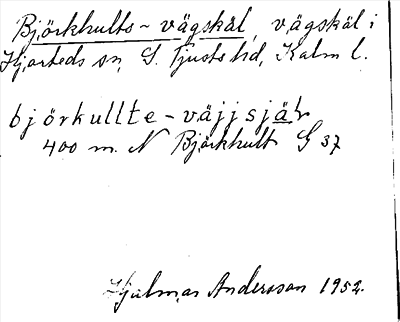 Björkhults-vägskäl, vägskäl i
Hjorteds sn, S. Tjusts hd, Kalm l.
björkullte-väjjsjäL
400 m. N Björkhult G 37
Hjalmar Andersson 1952.